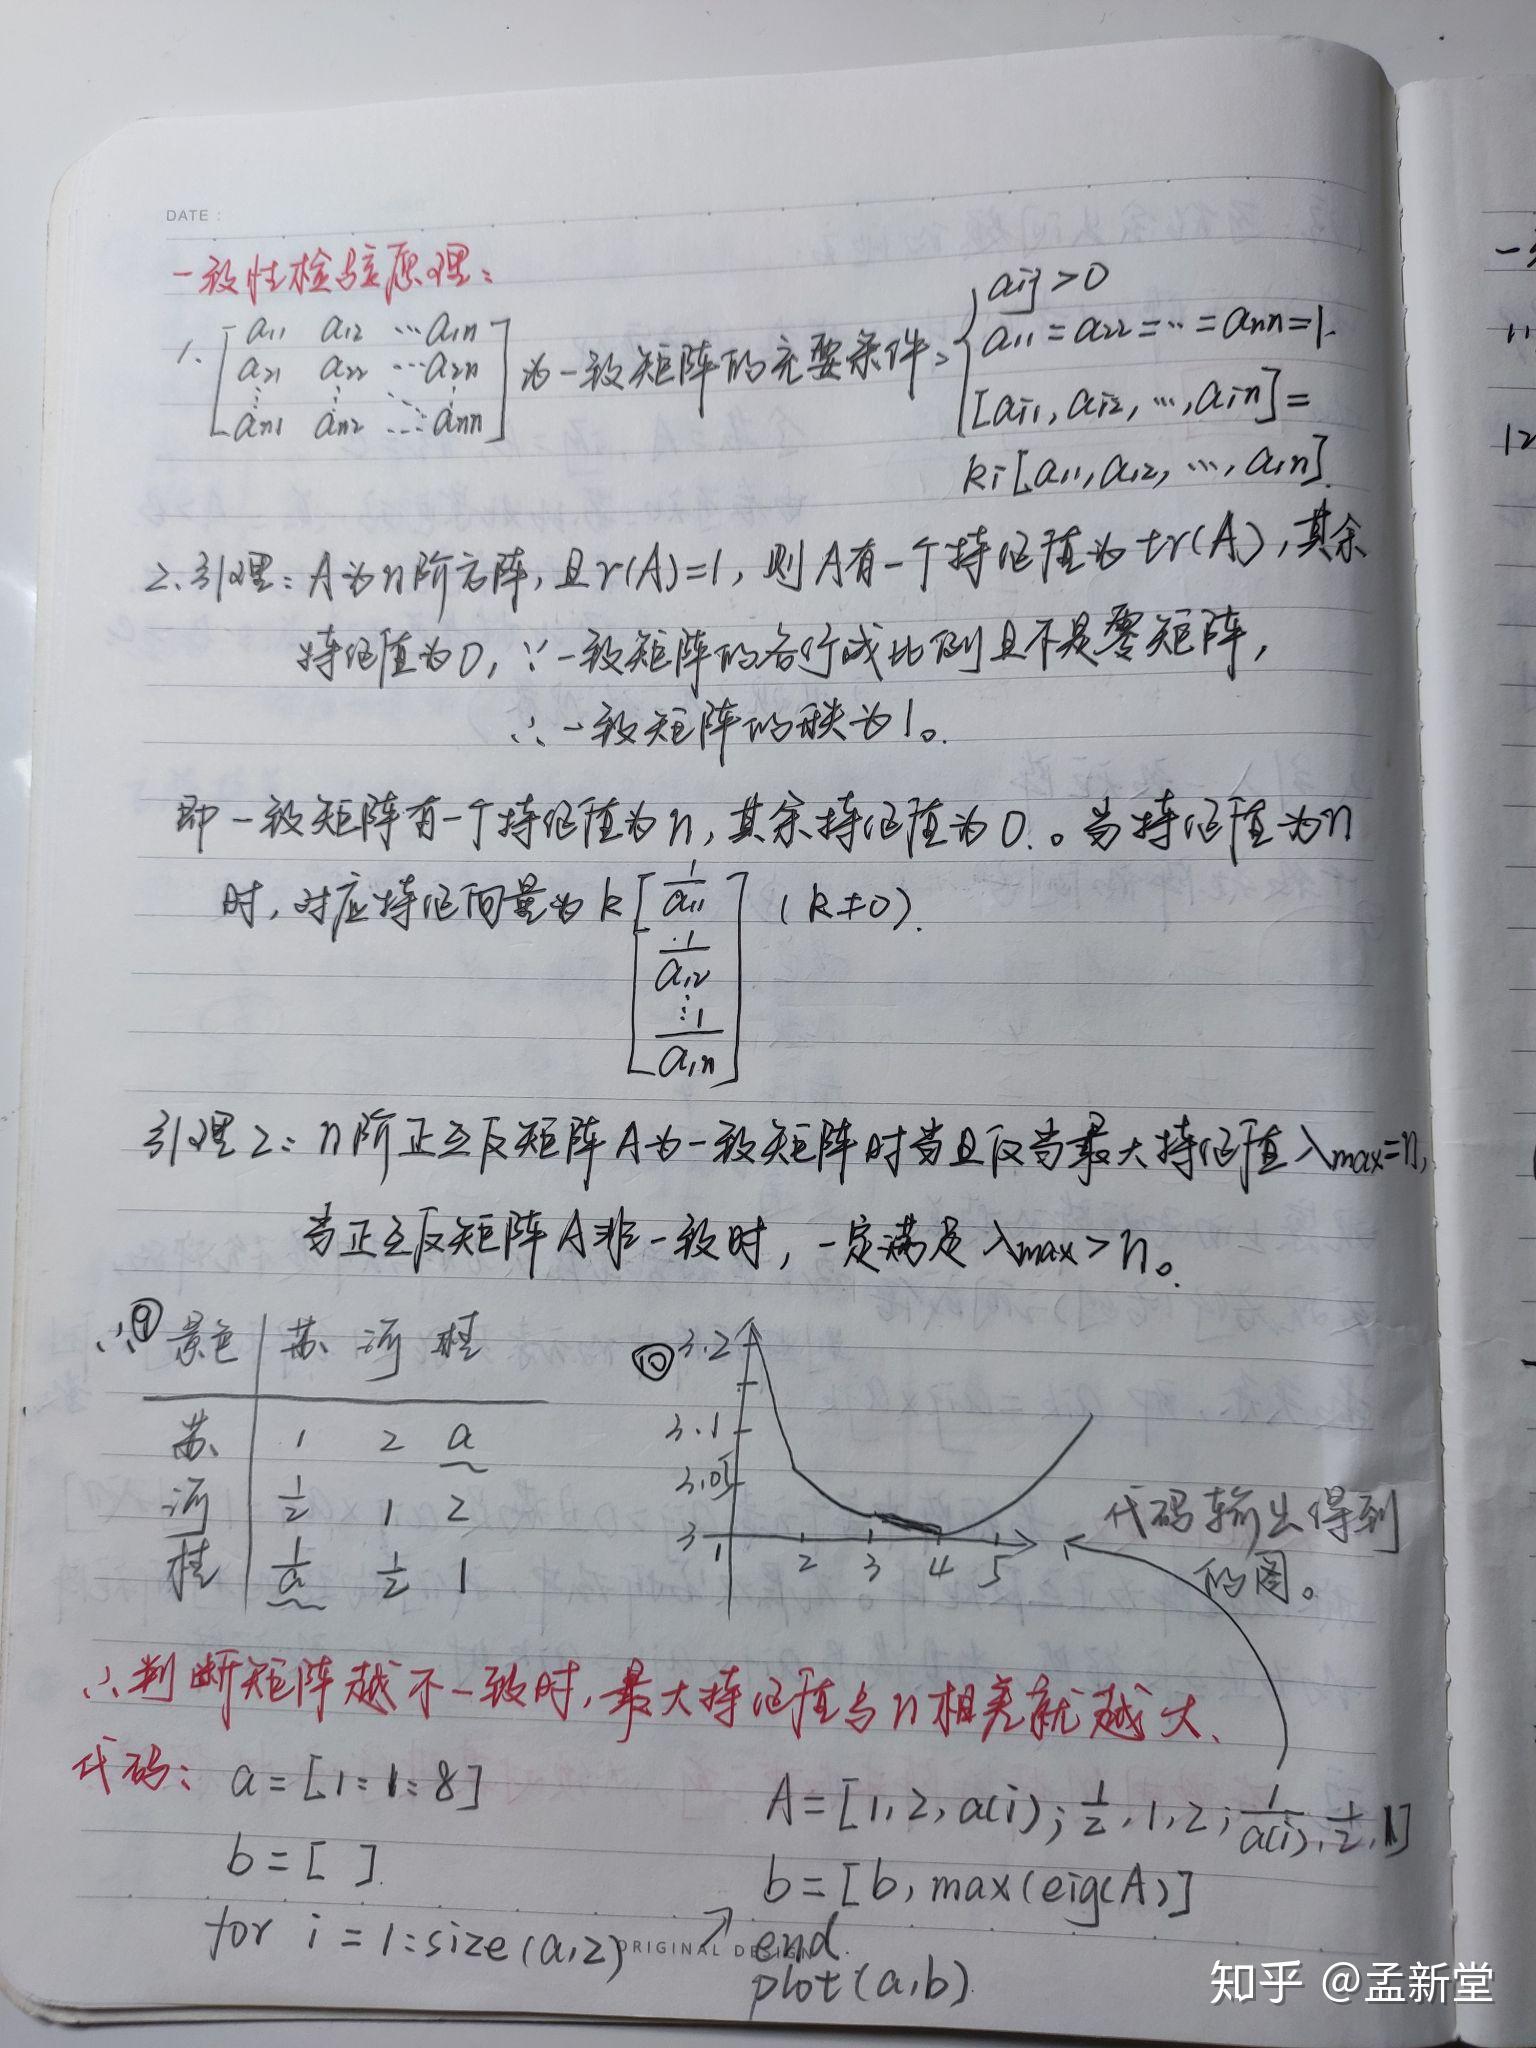 DATE :
一致性检验原理:
1. [a11 a12 … a1n
a21 a22 … a2n
⋮ ⋮ ⋱ ⋮
an1 an2 … ann] 为一致矩阵的充要条件:
{ aij>0
a11=a22=…=ann=1.
[ai1, ai2, …, ain]=
ki[a11, a12, …, a1n].
2.引理: A为n阶方阵,且r(A)=1,则A有一个特征值为tr(A),其余
特征值为0,∵一致矩阵的各行成比例且不是零矩阵,
∴一致矩阵的秩为1。
即一致矩阵有一个特征值为n,其余特征值为0。当特征值为n
时,对应特征向量为k[1/a11
1/a12
⋮
1/a1n] (k≠0).
引理2: n阶正互反矩阵A为一致矩阵时当且仅当最大特征值λmax=n,
当正互反矩阵A非一致时,一定满足λmax>n。
∴⑨ 景色 苏 河 桂
苏 1 2 a
河 1/2 1 2
桂 1/a 1/2 1
⑩ 3.2
3.1
3.05
3
1 2 3 4 5
代码输出得到
的图。
∴判断矩阵越不一致时,最大特征值与n相差就越大.
代码: a=[1:1:8]
b=[ ]
for i=1:size(a,2)
A=[1,2,a(i);1/2,1,2;1/a(i),1/2,1]
b=[b,max(eig(A)]
end
plot(a,b)
ORIGINAL DESIGN
知乎 @孟新堂